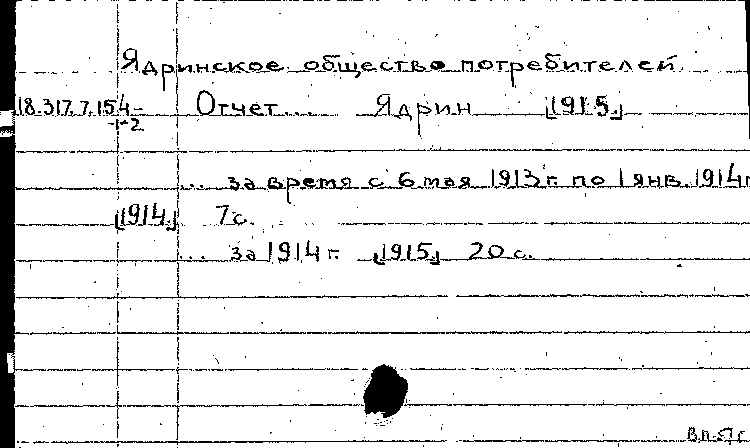 Ядринское общество потребителей.
18.317.7.154- Отчет... Ядрин [1915.]
1-2
... за время с 6 мая 1913 г. по 1 янв. 1914 г.
[1914.] 7 с.
... за 1914 г. [1915] 20 с.
В.п.-51 г.